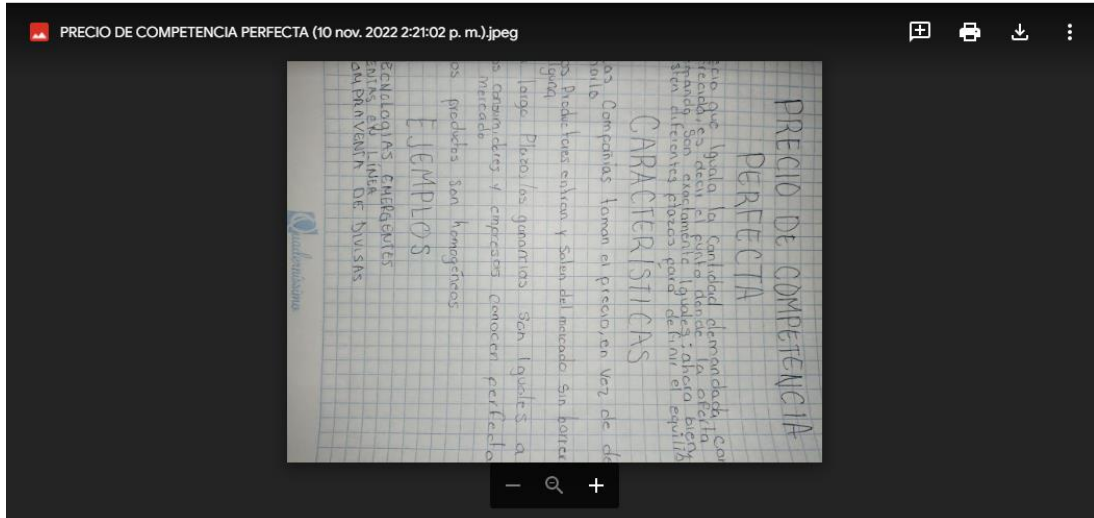 PRECIO DE COMPETENCIA PERFECTA (10 nov. 2022 2:21:02 p. m.).jpeg
PRECIO DE COMPETENCIA
PERFECTA
ecio que Iguala la Cantidad demandada con
frecida, es decir el punto donde la oferta
manda son exactamente Iguales; ahora bien
sten diferentes plazos para definir el equilib
CARACTERISTICAS
as Compañias toman el precio, en Vez de de
narlo
os Productores entran y Salen del mercado Sin barrer
lguna
largo Plazo, las ganancias Son Iguales a
os consumidores y empresas conocen perfecto
mercado
os productos Son homogéneos
EJEMPLOS
ECNOLOGIAS EMERGENTES
ENTAS EN LINEA
OMPRAVENTA DE DIVISAS
Quadernissimo